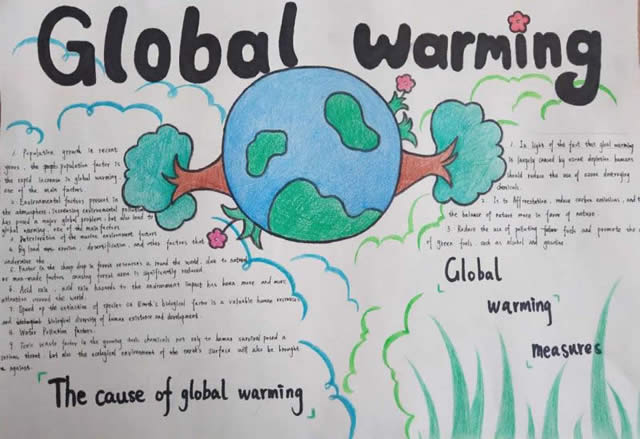 Global warming
1. Population growth in recent
years, the population factor is
the rapid increase in global warming
one of the main factors.
2. Environmental factors present in
the atmosphere, increasing environmental
has posed a major global problem, but also lead to
global warming, one of the main factors
3. Deterioration of the marine environment factors
4. By land erosion, desertification, and other factors that
undermine the
5. Factor in the sharp drop in forest resources a round the world, due to natural
or man-made factors, causing forest area is significantly reduced.
6. Acid rain, acid rain hazards to the environment impact has been more and more
attention around the world.
7. Speed up the extinction of species on Earth's biological factor is a valuable human resources
and biological diversity of human existence and development.
8. Water Pollution factors.
9. Toxic waste factor in the growing toxic chemicals not only to human survival posed a
serious threat, but also the ecological environment of the earth's surface will also be brought
a against.
The cause of global warming
1. In light of the fact that global warming
is largely caused by ozone depletion humans
should reduce the use of ozone destroying
chemicals.
2. It is Afforestation, reduce carbon emissions, and
the balance of nature more in favor of nature.
3. Reduce the use of polluting fuels and promote the
of green fuels, such as alcohol and gasoline
Global
warming
measures